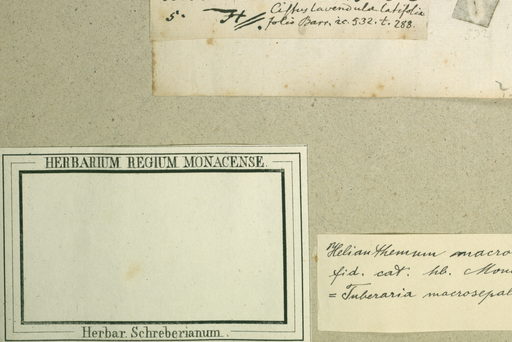 5. H. Cistus Lavendula Latifolia
folio Barr. ic. 532. t. 288.
HERBARIUM REGIUM MONACENSE.
Herbar. Schreberianum.
Helianthemum macro
fid. cat. hb. Mon
= Tuberaria macrosepal